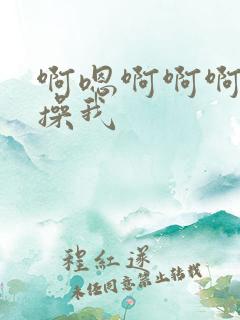 啊嗯啊啊啊
操我
程红遂
未经同意禁止转载